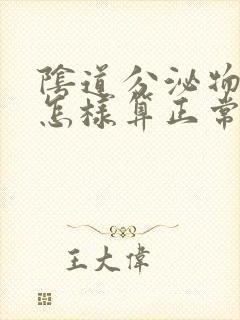 陰道分泌物
怎樣算正常
王大偉